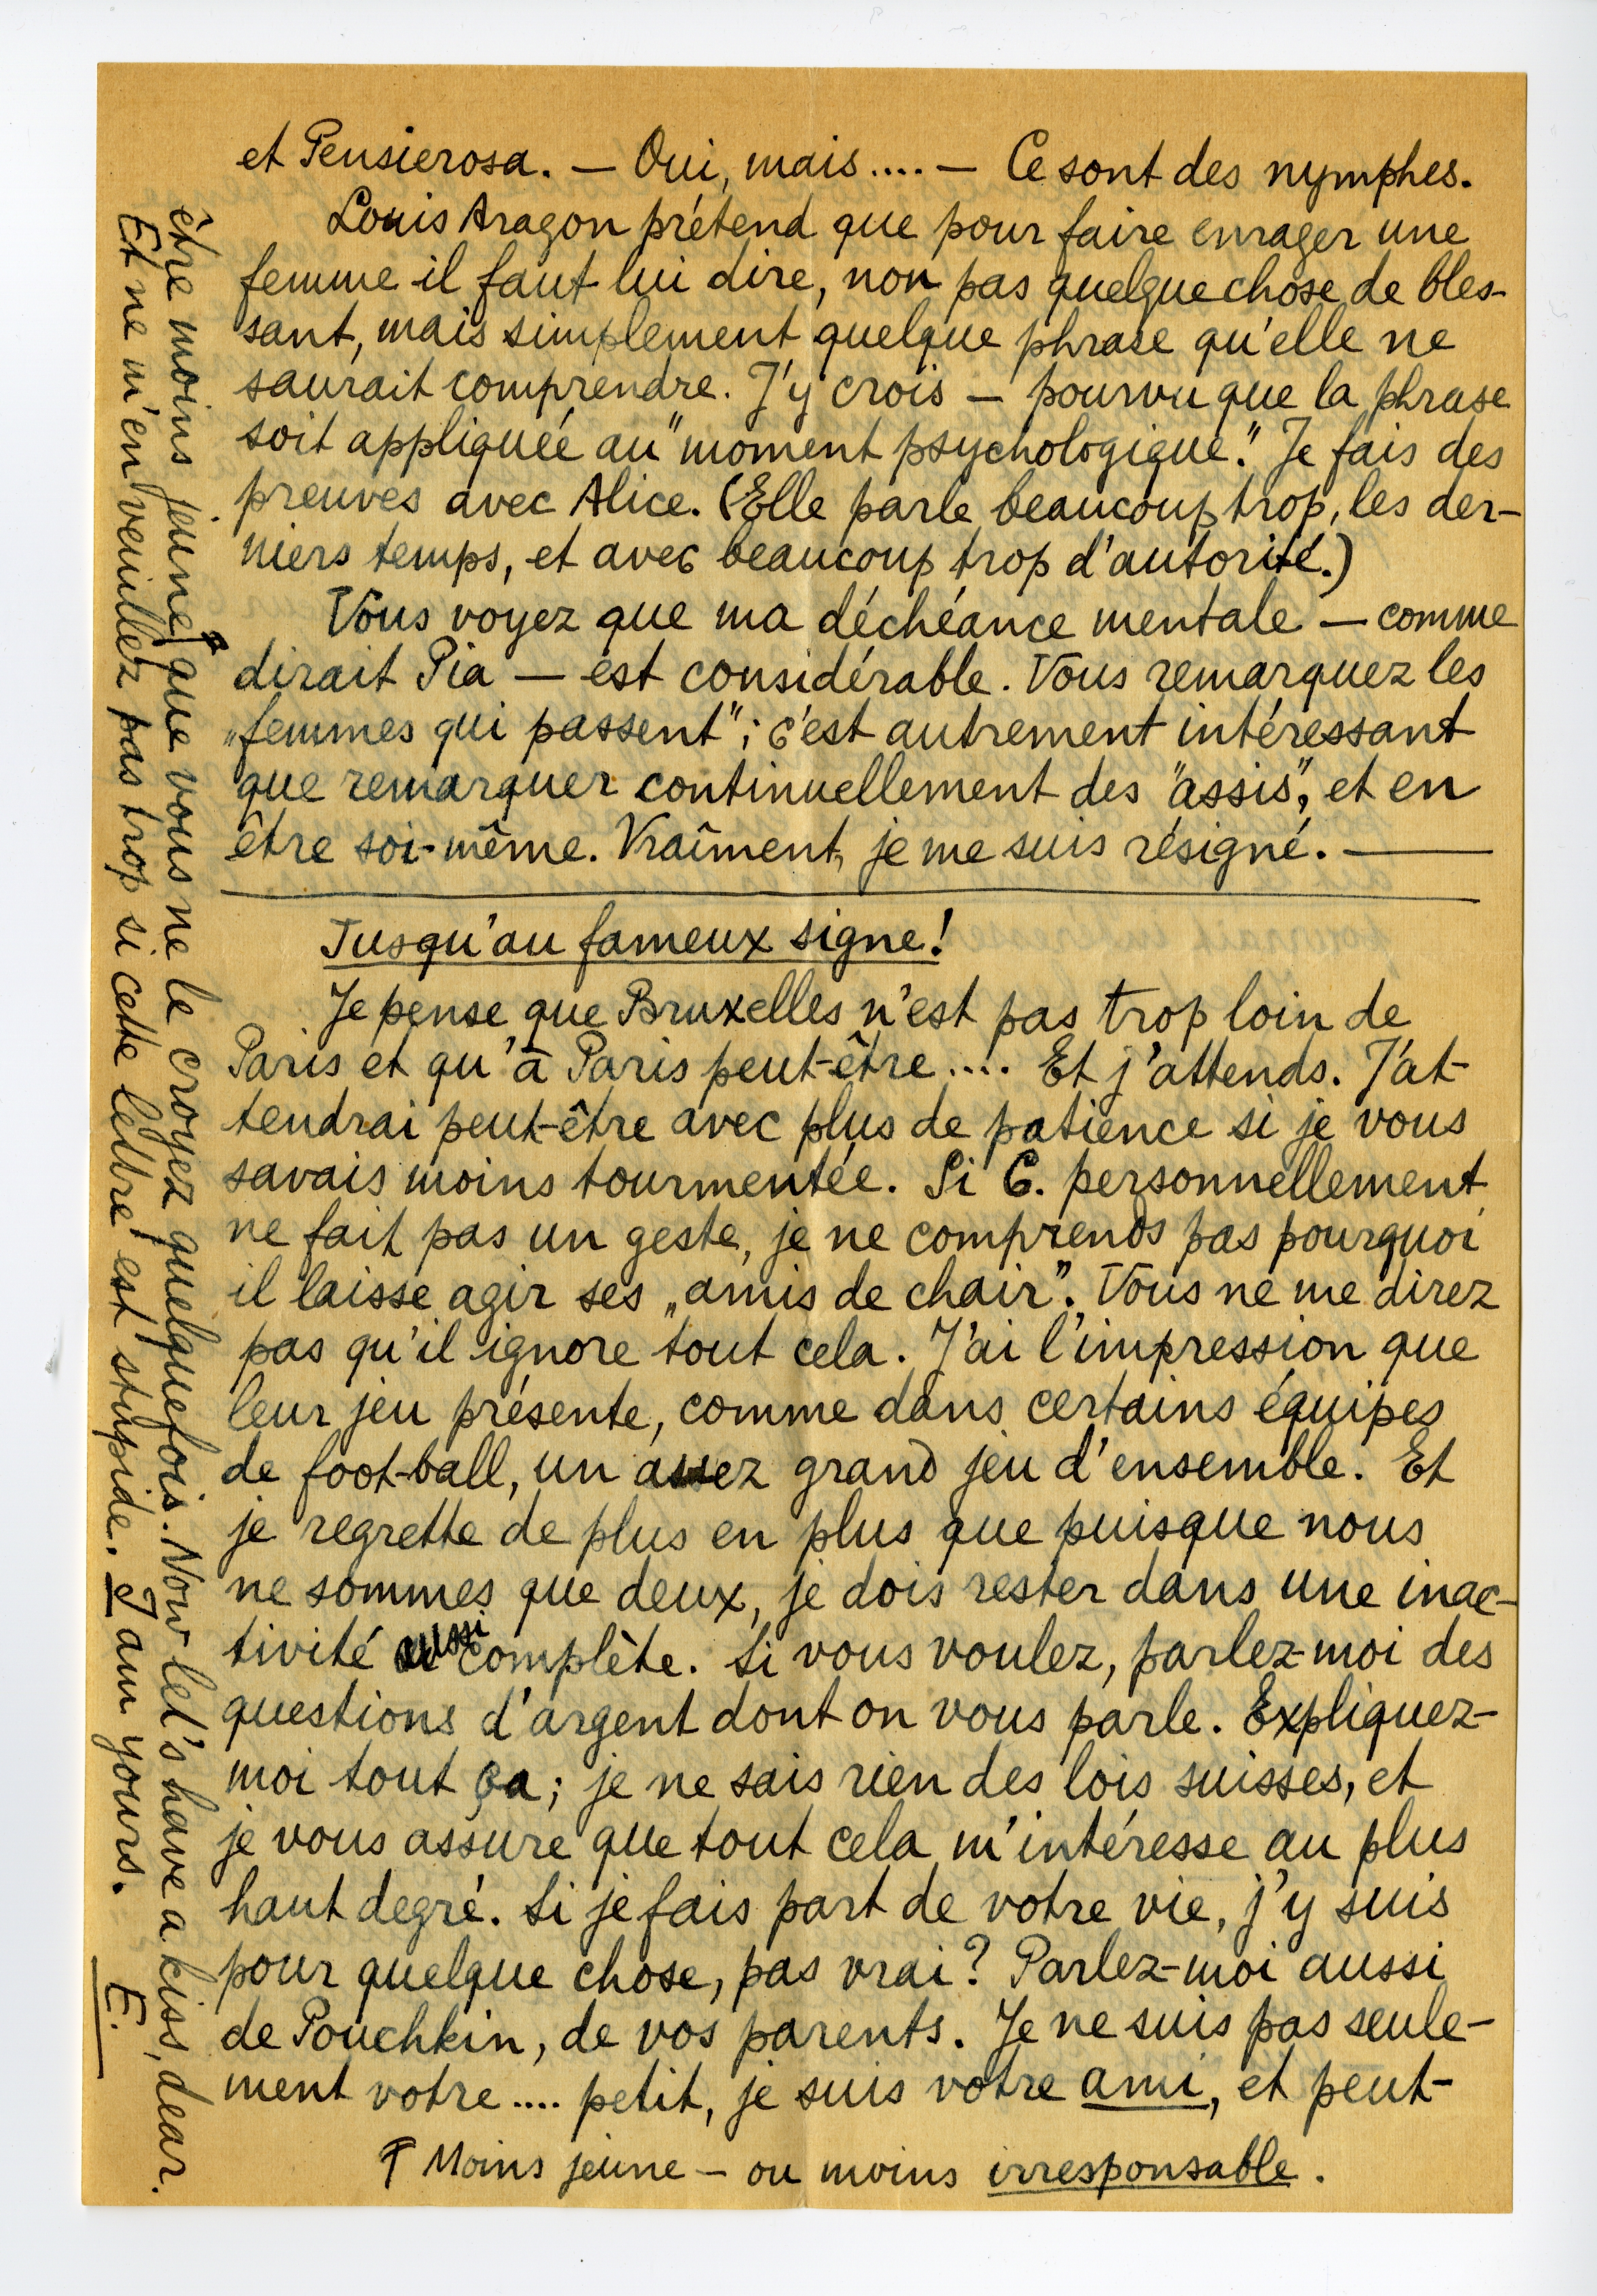 et Pensierosa. — Oui, mais.... — Ce sont des nymphes.
Louis Aragon prétend que pour faire enrager une
femme il faut lui dire, non pas quelque chose de bles-
sant, mais simplement quelque phrase qu'elle ne
saurait comprendre. J'y crois — pourvu que la phrase
soit appliquée au "moment psychologique." Je fais des
preuves avec Alice. (Elle parle beaucoup trop, les der-
niers temps, et avec beaucoup trop d'autorité.)
Vous voyez que ma déchéance mentale — comme
dirait Pia — est considérable. Vous remarquez les
„femmes qui passent"; c'est autrement intéressant
que remarquer continuellement des "assis", et en
être soi-même. Vraîment, je me suis résigné. —
Jusqu'au fameux signe!
Je pense que Bruxelles n'est pas trop loin de
Paris et qu'à Paris peut-être.... Et j'attends. J'at-
tendrai peut-être avec plus de patience si je vous
savais moins tourmentée. Si C. personnellement
ne fait pas un geste, je ne comprends pas pourquoi
il laisse agir ses „amis de chair". Vous ne me direz
pas qu'il ignore tout cela. J'ai l'impression que
leur jeu présente, comme dans certains équipes
de foot-ball, un assez grand jeu d'ensemble. Et
je regrette de plus en plus que puisque nous
ne sommes que deux, je dois rester dans une inac-
tivité aussi complète. Si vous voulez, parlez-moi des
questions d'argent dont on vous parle. Expliquez-
moi tout ça; je ne sais rien des lois suisses, et
je vous assure que tout cela m'intéresse au plus
haut degré. Si je fais part de votre vie, j'y suis
pour quelque chose, pas vrai? Parlez-moi aussi
de Pouchkin, de vos parents. Je ne suis pas seule-
ment votre.... petit, je suis votre ami, et peut-
être moins jeune ↑ que vous ne le croyez quelquefois. Now let's have a kiss, dear.
Et ne m'en veuillez pas trop si cette lettre est stupide. I am yours.
E.
↑ Moins jeune — ou moins irresponsable.